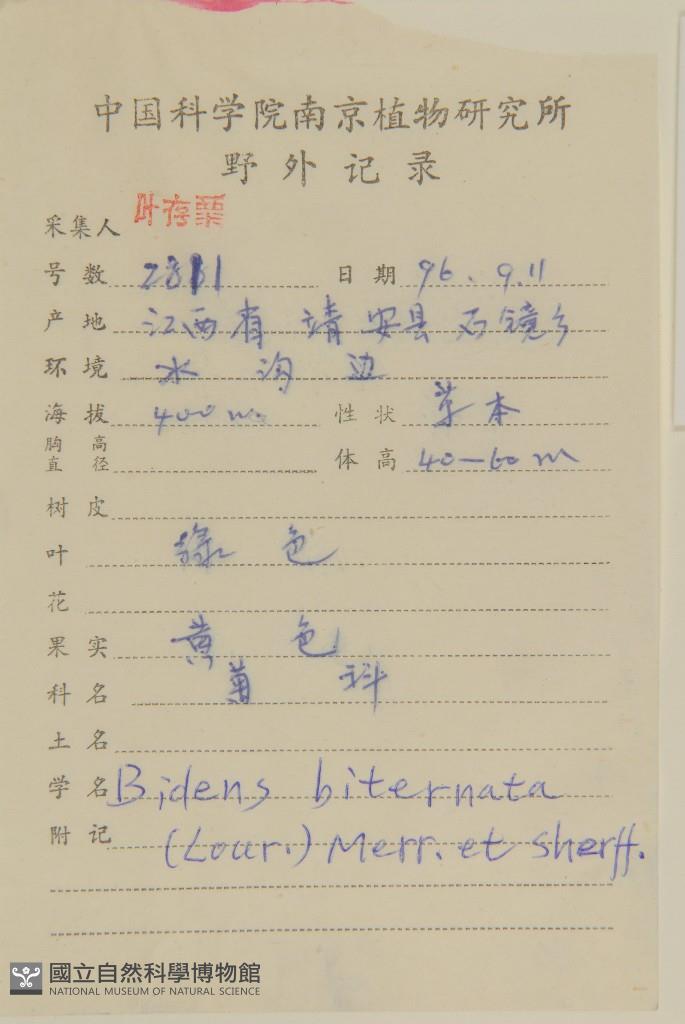 中国科学院南京植物研究所
野外记录
采集人 叶存粟
号数 2811 日期 96.9.11
产地 江西省 靖安县 石镜乡
环境 水沟边
海拔 400m. 性状 草本
胸高直径 体高 40-60m
树皮
叶 绿色
花
果实 黄色
科名 菊科
土名
学名 Bidens biternata
附记 (Lour.) Merr. et sherff.
國立自然科學博物館
NATIONAL MUSEUM OF NATURAL SCIENCE